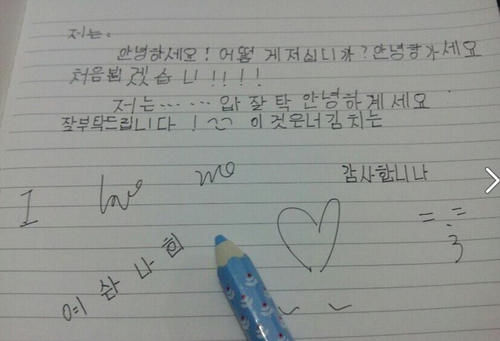 저는.
안녕하세요! 어떨 게저십니까? 안녕하가세요
처음뵙겠습니!!!!
저는…… 와잘탁 안녕하계세요
잘부탁드립니다! ~~ 이것은너김치는
I love me
감사합니나